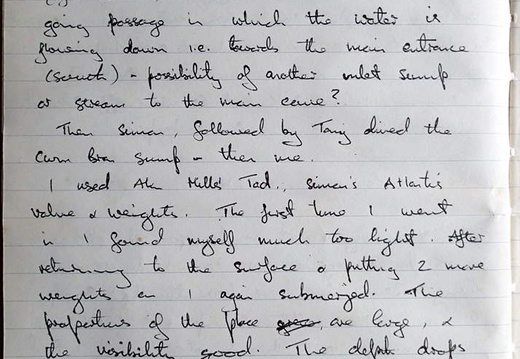 going passage in which the water is
flowing down i.e. towards the main entrance
(south) - possibility of another inlet sump
or stream to the main cave?
Then Simon, followed by Tony dived the
Cwm Bran sump - then me.
I used Alan Mills' Tad., Simon's Atlantis
valve & weights. The first time I went
in I found myself much too light. After
returning to the surface & putting 2 more
weights on I again submerged. The
properties of the place are large, &
the visibility good. The depth drops